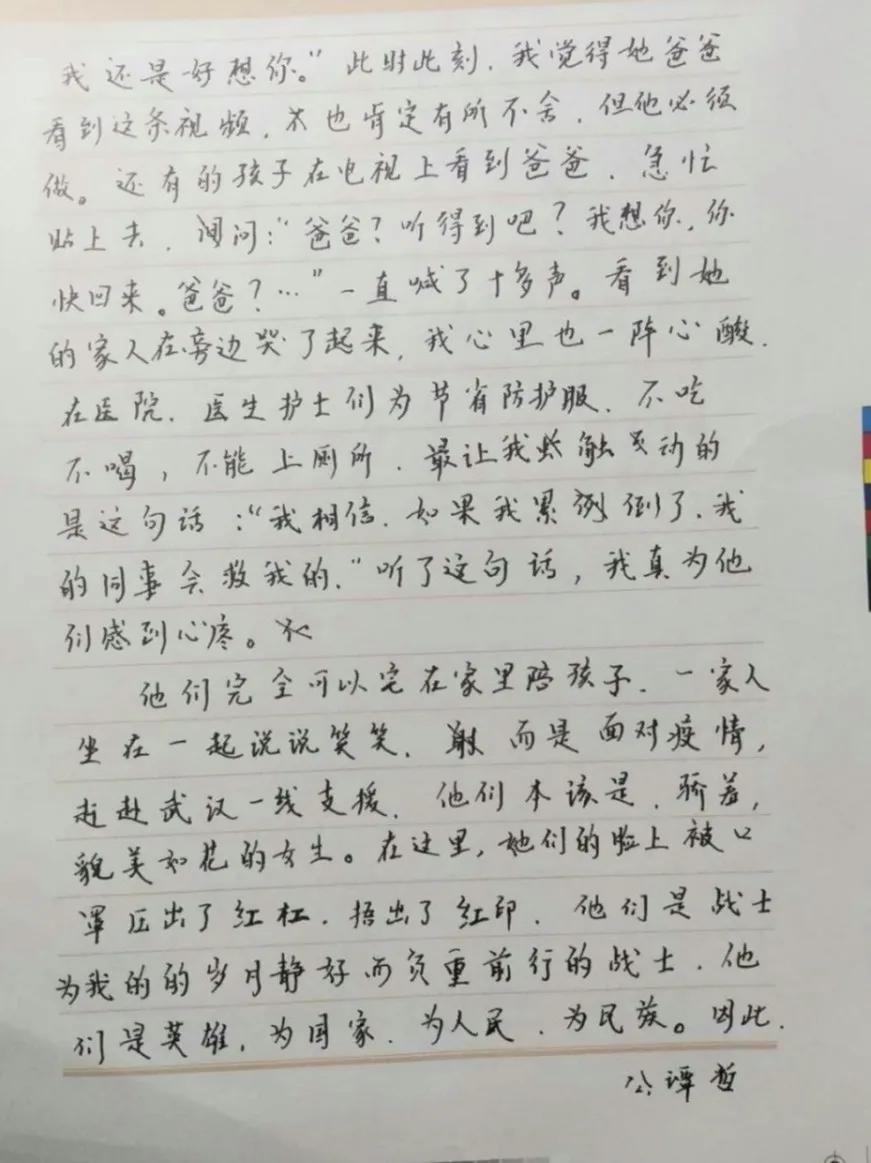 我还是好想你。”此时此刻，我觉得她爸爸
看到这条视频，也肯定有所不舍，但他必须
做。还有的孩子在电视上看到爸爸，急忙
贴上去，询问：“爸爸？听得到吧？我想你，你
快回来。爸爸？…”一直喊了十多声。看到她
的家人在旁边哭了起来，我心里也一阵心酸.
在医院，医生护士们为节省防护服，不吃
不喝，不能上厕所，最让我触动的
是这句话：“我相信，如果我累倒了，我
的同事会救我的，”听了这句话，我真为他
们感到心疼。
他们完全可以宅在家里陪孩子，一家人
坐在一起说说笑笑，而是面对疫情，
赶赴武汉一线支援，他们本该是，骄羞，
貌美如花的女生。在这里，她们的脸上被口
罩压出了红杠，捂出了红印，他们是战士
为我的的岁月静好而负重前行的战士，他
们是英雄，为国家，为人民，为民族。因此，
公谭哲